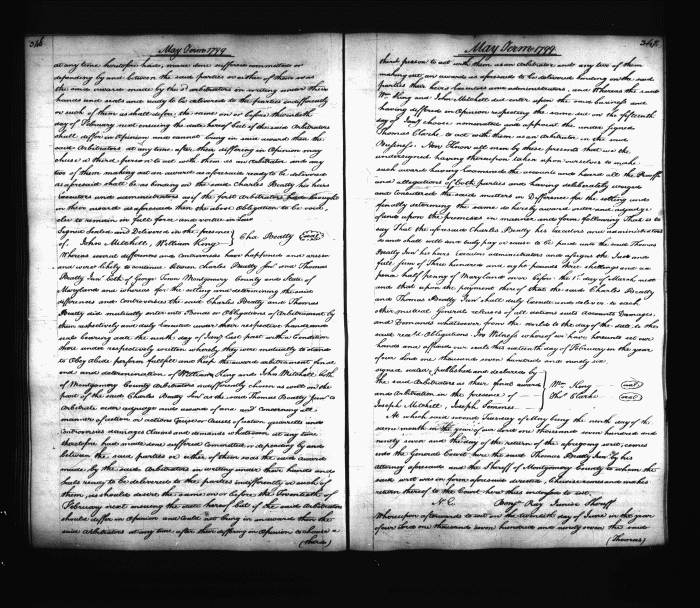 May Term 1799
at any time heretofore had, made done suffered committed or
depending by and between the said parties or either of them so as
the same award made by the Arbitrators in writing under their
hands and seals and ready to be delivered to the parties indifferently
or such of them as shall desire the same on or before the
day of February next ensuing the date hereof but if the said Arbitrators
shall differ in Opinion and cannot bring in said award then the
said Arbitrators at any time after their differing in Opinion may
chuse a third person to act with them as an Arbitrator and any
two of them making out an award as aforesaid ready to be delivered
as aforesaid shall be as binding on the said Charles Beatty his heirs
Executors and administrators as if the first Arbitrators had brought
in their award as aforesaid then the above Obligation to be void,
else to remain in full force and virtue in law
Signed Sealed and Delivered in the presence
of. John Mitchell, William King } Chs Beatty (seal)
Whereas several differences and controversies have happened and arisen
and were likely to continue between Charles Beatty and Thomas
Beatty Junr both of George Town Montgomery County and State of
Maryland and Whereas for the settling and determining the said
differences and controversies the said Charles Beatty and Thomas
Beatty did mutually enter into Bonds or Obligations of Arbitrament by
them respectively and duly Executed under their respective hands and
seals bearing date the ninth day of Jany last past with a Condition
there under respectively written whereby they were mutually to stand
to Obey abide perform fulfill and keep the award arbitrament final
end and determination of William King and John Mitchell both
of Montgomery County arbitrators indifferently chosen as well on the
part of the said Charles Beatty as the said Thomas Beatty Junr to
Arbitrate order adjudge and award of and concerning all
manner of action or actions Cause or Causes of action quarrells
controversies damages Claims and demands whatsoever at any time
theretofore had made done suffered committed or depending by and
between the said parties or either of them so as the said award
made by the said Arbitrators in writing under their hands and
seals ready to be delivered to the parties indifferently or such of
them, as should desire the same on or before the Seventeenth of
February next ensuing the date hereof but if the said Arbitrators
should differ in Opinion and could not bring in an award then the
said Arbitrators at any time after their differing in Opinion to choose a
(third)
May Term 1799
third person to act with them as an Arbitrator and any two of them
making out an award as aforesaid to be delivered binding on the said
parties their heirs Executors and administrators, and Whereas the said
Wm King and John Mitchell did enter upon the said business and
having differed in Opinion respecting the same did on the fifteenth
day of Jany choose nominate and appoint the under signed
Thomas Clarke to act with them as an Arbitrator in the said
Business. Now Know all men by these presents that we the
undersigned having thereupon taken upon ourselves to make
such award having examined the accounts and heard all the Proofs
and allegations of both parties and having deliberately weighed
and Considered the said matters in Difference for the settling and
finally determining the same do hereby award order and adjudge
of and upon the premisses in manner and form following That is to
say That the aforesaid Charles Beatty his Executors and administrators
do and shall well and truly pay or cause to be paid unto the said Thomas
Beatty Junr his heirs Executors administrators and assigns the Just and
full sum of Three hundred and eighty pounds three shillings and six
pence half penny of Maryland money before the 1st day of March next
and that upon the payment thereof that the said Charles Beatty
and Thomas Beatty Junr shall duly Execute and deliver to each
other mutual General releases of all actions suits Accounts Damages,
and Demands whatsoever from the world to the day of the date to their
said recd Obligations. In Witness whereof we have hereunto set our
hands and affixed our seals this seventeenth day of February in the year
of our lord one thousand seven hundred and ninety six.
signed sealed, published and declared by
the said Arbitrators as their final award
and Arbitration in the presence of } Wm King (seal)
Joseph Mitchell, Joseph Semmes. Thos Clarke (seal)
At which said second Tuesday of May being the ninth day of the
same month in the year of our lord one thousand seven hundred and
ninety seven and the day of the return of the aforegoing writ, comes
into the General Court here the said Thomas Beatty Junr by his
attorney aforesaid and the Sheriff of Montgomery County to whom the
said writ was in form aforesaid directed, likewise comes and makes
return thereof to the Court here thus endorsed to wit.
N. E. Benja Ray Junior Sheriff
Whereupon afterwards to wit on the twentieth day of June in the year
of our lord one thousand seven hundred and ninety seven the said
(Thomas)